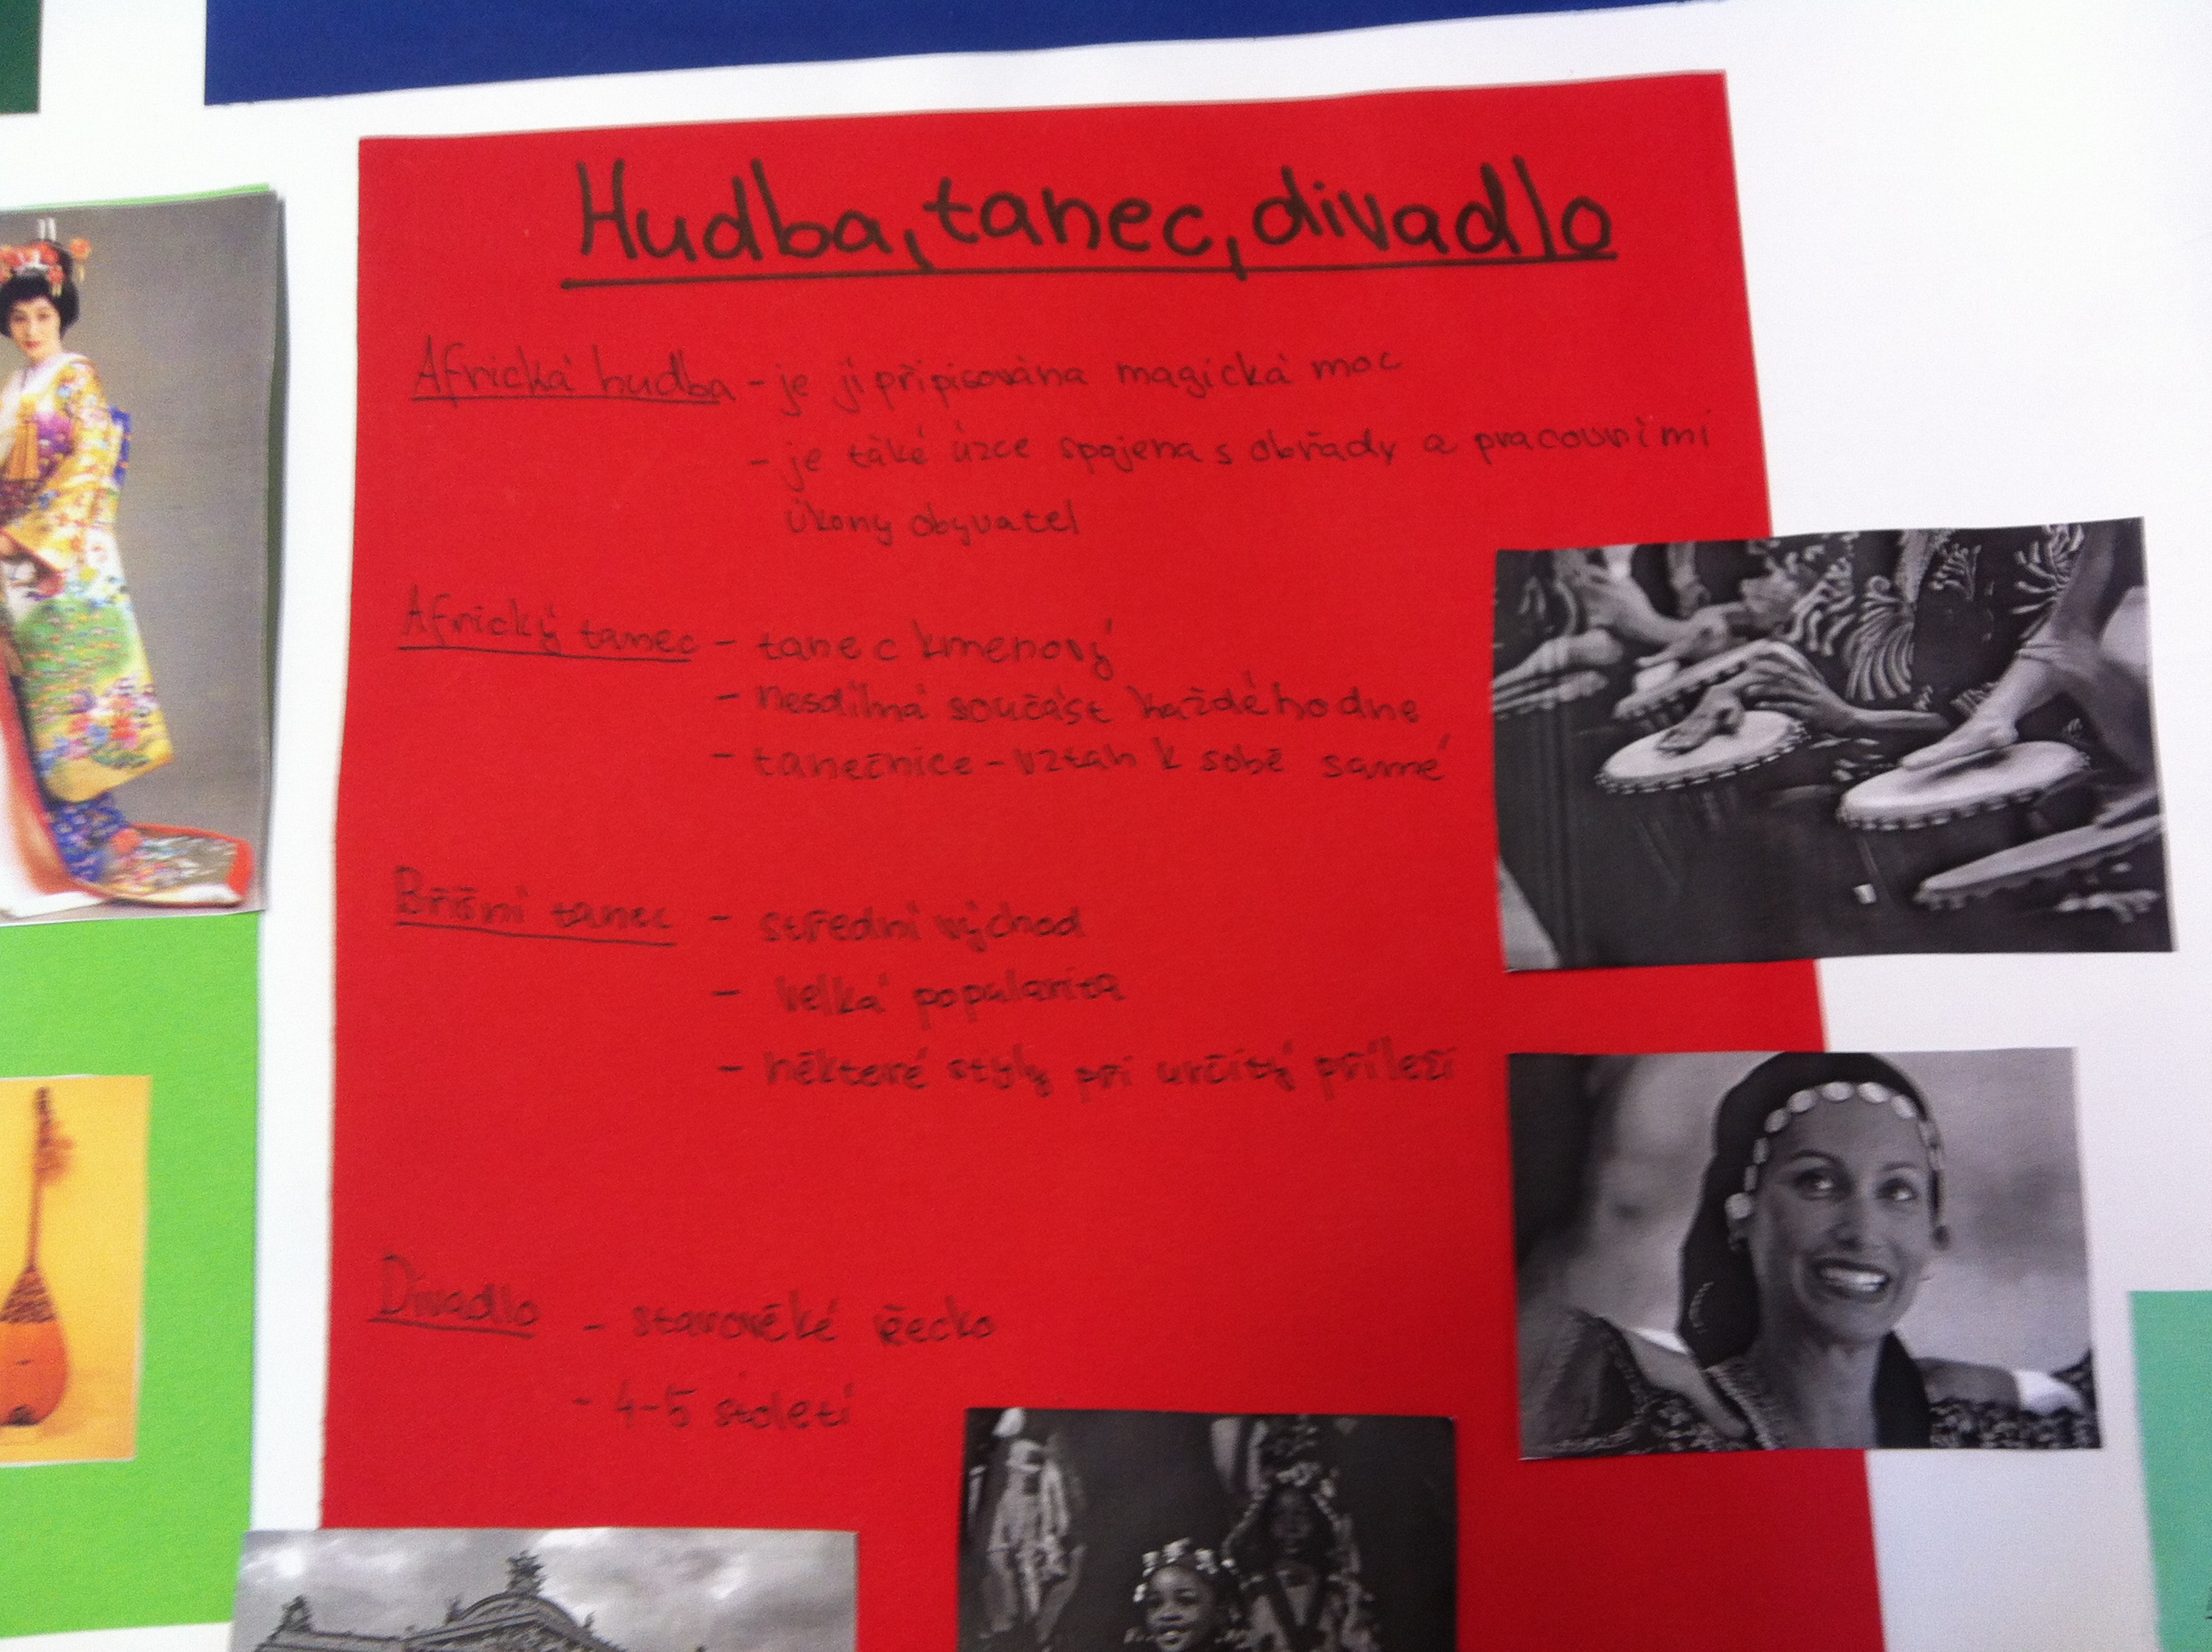 Hudba, tanec, divadlo
Africká hudba - je jí připisována magická moc
- je také úzce spojena s obřady a pracovními
úkony obyvatel
Africký tanec - tanec kmenový
- nesdílná součást každého dne
- tanečnice - vztah k sobě samé
Břišní tanec - střední východ
- velká popularita
- některé styly při určitý příleži
Divadlo - starověké řecko
- 4-5 století